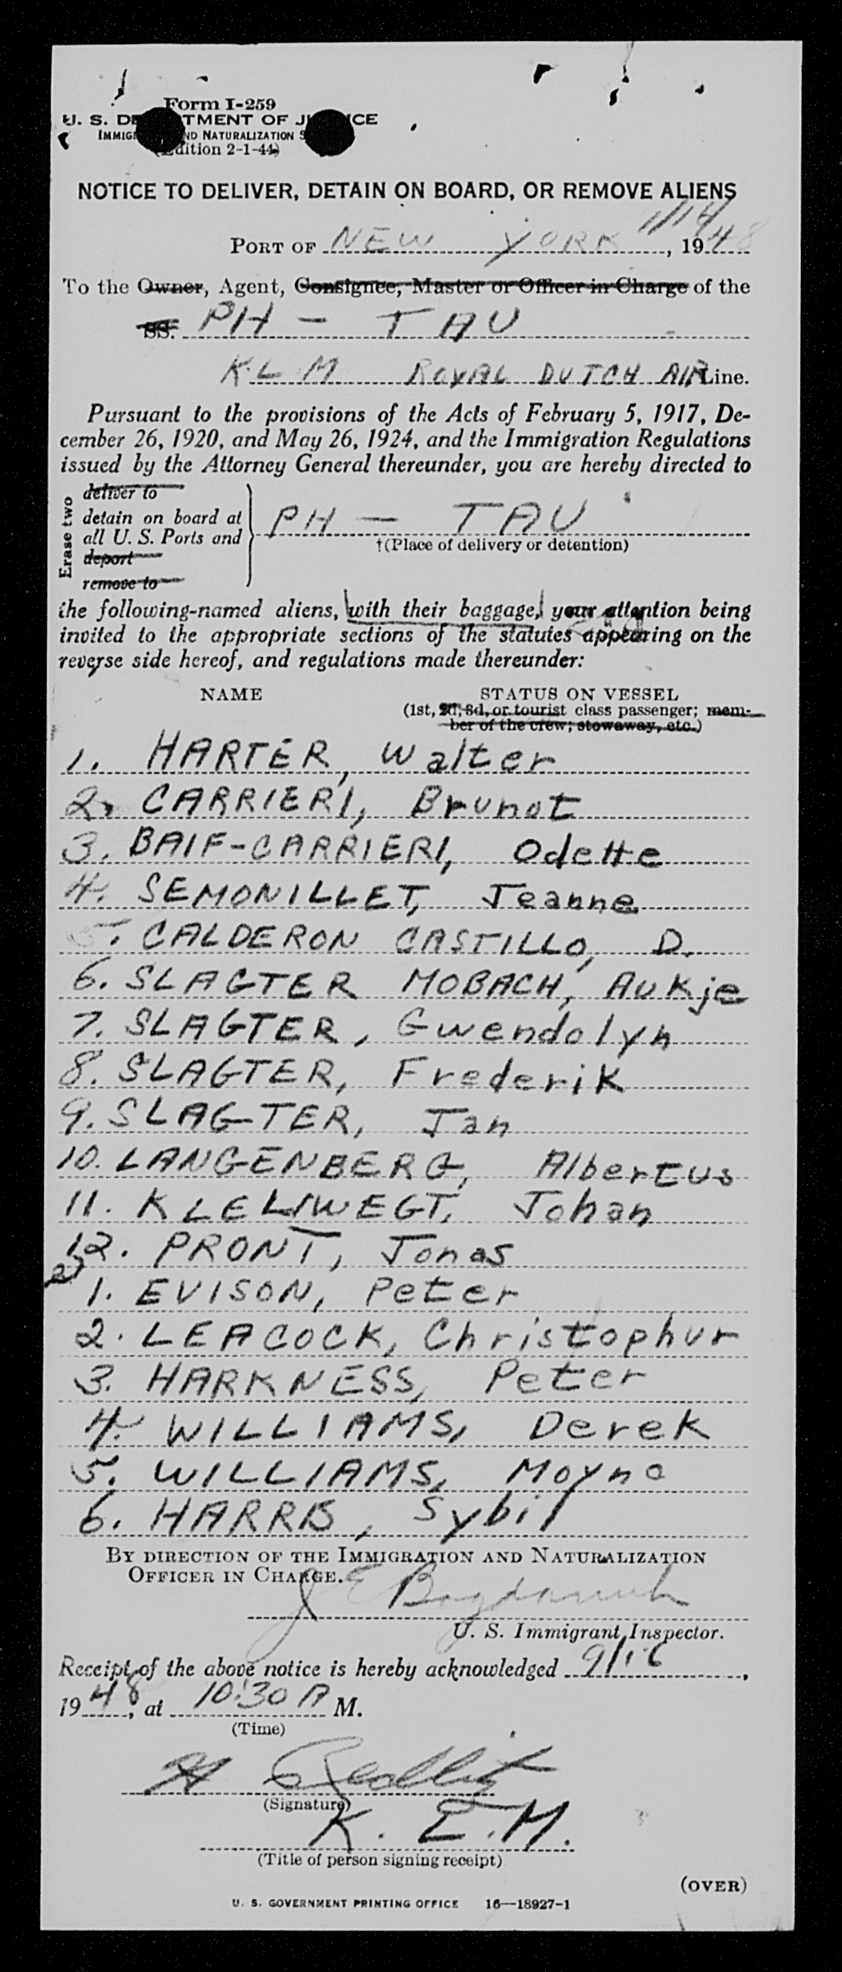 Form I-259
U. S. DE TMENT OF J ICE
IMMIG ND NATURALIZATION S
(Edition 2-1-44)
NOTICE TO DELIVER, DETAIN ON BOARD, OR REMOVE ALIENS
PORT OF NEW YORK 1/14, 1948
To the Owner, Agent, Consignee, Master or Officer in Charge of the
SS. PH - TAU
KLM ROYAL DUTCH AIR Line.
Pursuant to the provisions of the Acts of February 5, 1917, De-
cember 26, 1920, and May 26, 1924, and the Immigration Regulations
issued by the Attorney General thereunder, you are hereby directed to
Erase two
deliver to
detain on board at
all U. S. Ports and
deport
remove to
PH - TAU
†(Place of delivery or detention)
the following-named aliens, with their baggage, your attention being
invited to the appropriate sections of the statutes appearing on the
reverse side hereof, and regulations made thereunder:
NAME STATUS ON VESSEL
(1st, 2d, 3d, or tourist class passenger; mem-
ber of the crew; stowaway, etc.)
1. HARTER, Walter
2. CARRIERI, Brunot
3. BAIF-CARRIERI, Odette
4. SEMONILLET, Jeanne
5. CALDERON CASTILLO, D.
6. SLAGTER MOBACH, Aukje
7. SLAGTER, Gwendolyn
8. SLAGTER, Frederik
9. SLAGTER, Jan
10. LANGENBERG, Albertus
11. KLELIWEGT, Johan
12. PRONT, Jonas
2) 1. EVISON, Peter
2. LEACOCK, Christophur
3. HARKNESS, Peter
4. WILLIAMS, Derek
5. WILLIAMS, Moyna
6. HARRIS, Sybil
BY DIRECTION OF THE IMMIGRATION AND NATURALIZATION
OFFICER IN CHARGE.
U. S. Immigrant Inspector.
Receipt of the above notice is hereby acknowledged 9/16,
1948, at 10:30 A M.
(Time)
H
(Signature)
K. L. M.
(Title of person signing receipt)
(OVER)
U. S. GOVERNMENT PRINTING OFFICE 16—18927-1